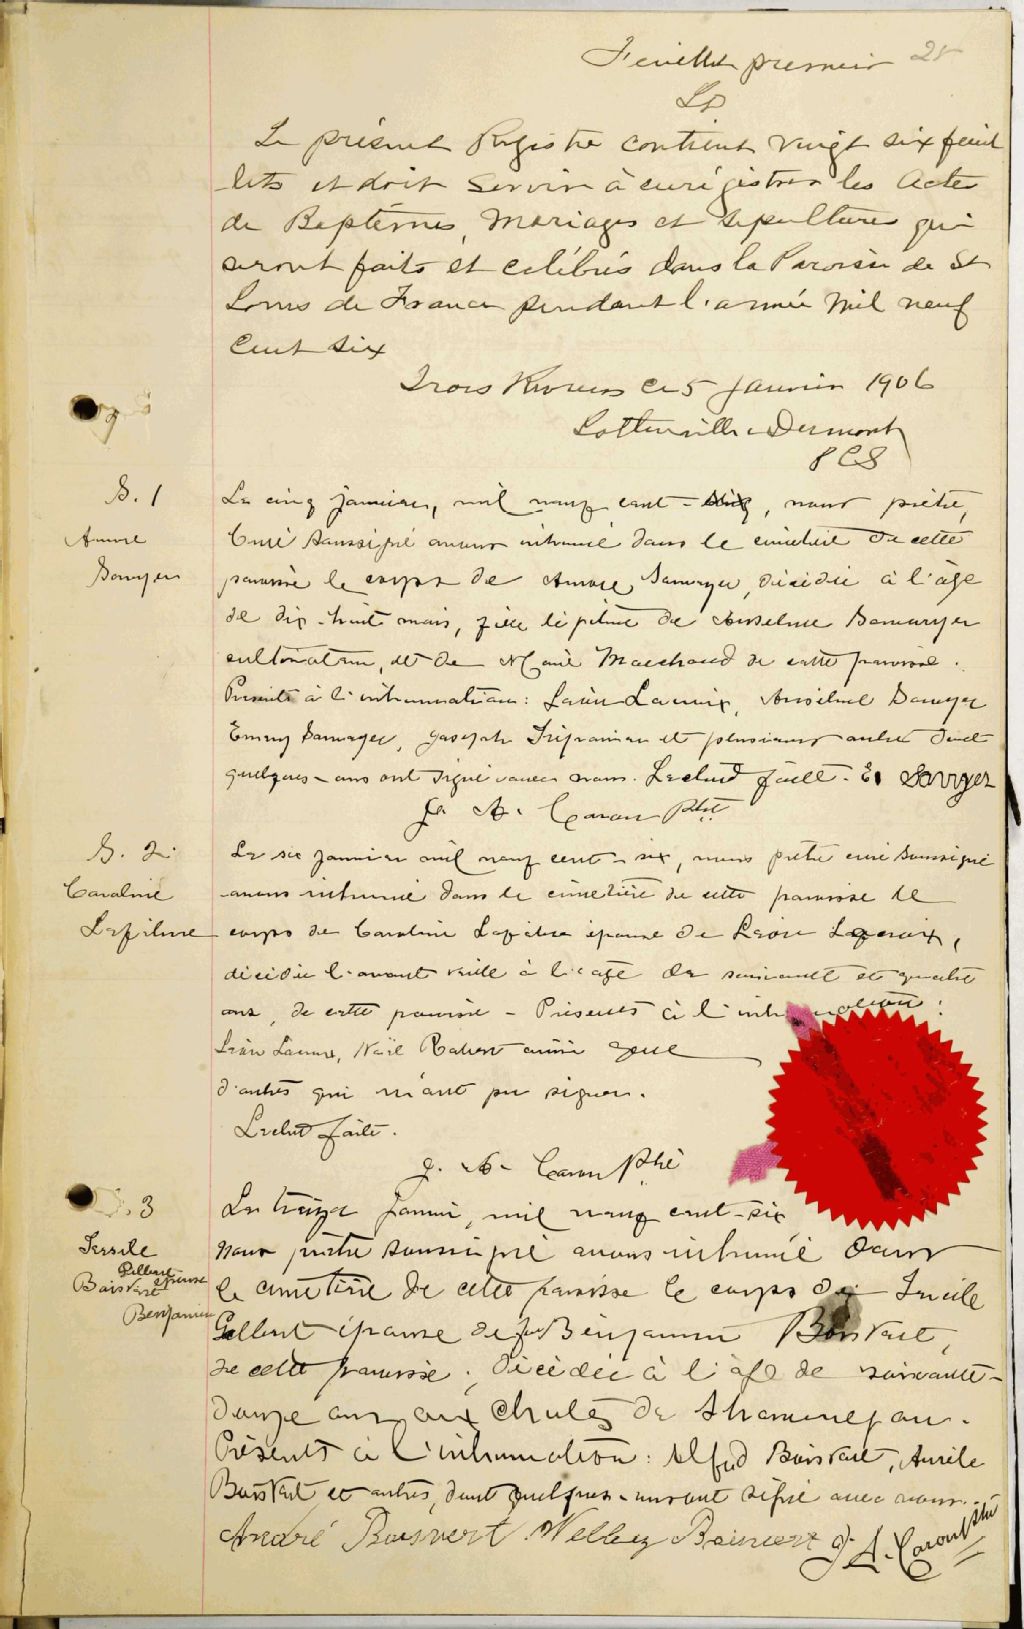 Feuillet premier
Le présent Registre contient vingt six feuil
lets et doit servir à enrégistrer les Actes
de Baptêmes, Mariages et sepultures qui
seront faits et célébrés dans la Paroisse de St
Louis de France pendant l'année Mil neuf
Cent six
Trois Rivieres ce 5 Janvier 1906
P C S
S. 1
Le cinq janvier, mil neuf cent - six, nous prêtre,
Curé soussigné avons inhumé dans le cimetière de cette
paroisse le corps de décédée à l'âge
de dix-huit mois, fille légitime de Anselme
cultivateur, et de Marie Marchand de cette paroisse.
Présents à l'inhumation: Léon Lacroix, Anselme
Joseph et plusieurs autres dont
quelques-uns ont signé avec nous. Lecture faite.
J. A. Caron Ptre
S. 2.
Caroline
Lefebvre
Le six janvier mil neuf cent-six, nous prêtre curé soussigné
avons inhumé dans le cimetière de cette paroisse le
corps de Caroline Lefebvre épouse de Léon Lacroix,
décédée l'avant veille à l'age de soixante et quatre
ans, de cette paroisse - Présents à l'inhumation:
Léon Lacroix, Noël ainsi que
d'autres qui n'ont pu signer.
Lecture faite.
J. A. Caron Ptre
S. 3
Gilbert
Boisvert épouse
Benjamin
Le treize Janvier, mil neuf cent-six
nous prêtre soussigné avons inhumé dans
le cimetière de cette paroisse le corps de
Gilbert épouse de feu Benjamin Boisvert,
de cette paroisse, décédée à l'âge de soixante-
douze ans aux Chutes de Shawenegan.
Présents à l'inhumation: Alfred Boisvert, Aurèle
Boisvert et autres, dont quelques-uns ont signé avec nous.
André Boisvert Welley Boisvert J. A. Caron Ptre